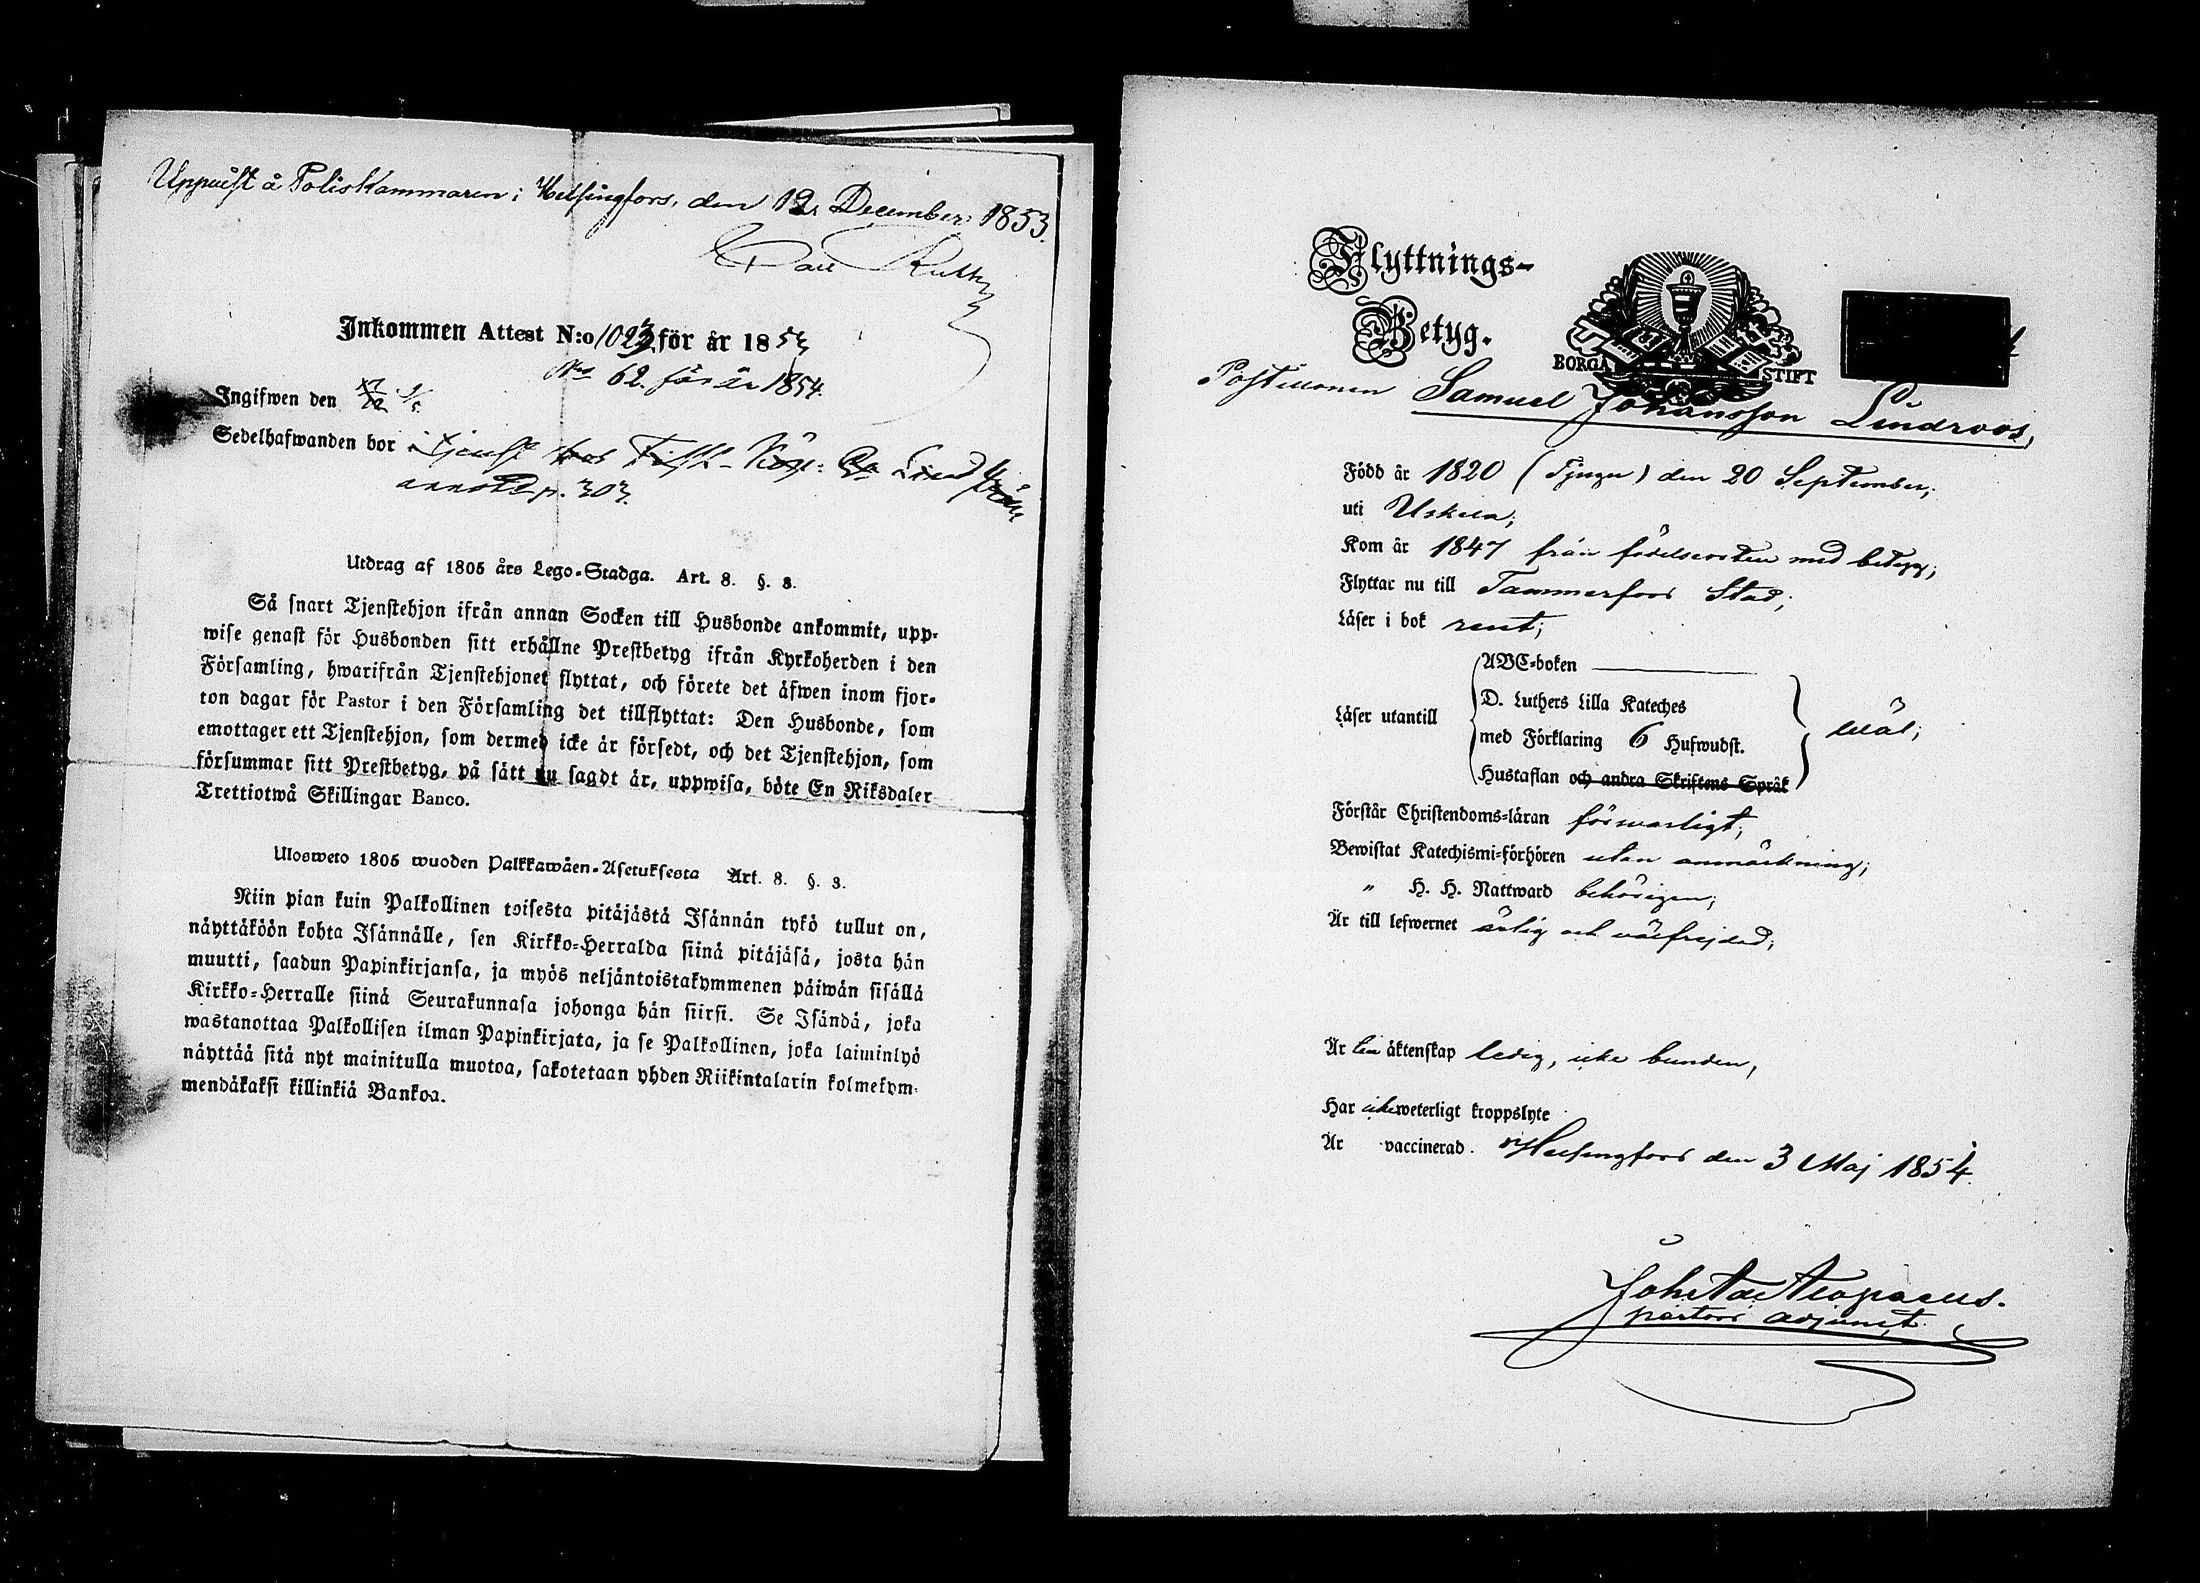 Uppvist å Poliskammaren i Helsingfors, den 12 December 1853.
Inkommen Attest N:o 1023 för år 1853
No 62. för år 1854.
Ingifwen den
Sedelhafwanden bor i tjenst hos
p. 303.
Utdrag af 1805 års Lego-Stadga. Art. 8. §. 8.
Så snart Tjenstehjon ifrån annan Socken till Husbonde ankommit, upp-
wise genast för Husbonden sitt erhållne Prestbetyg ifrån Kyrkoherden i den
Församling, hwarifrån Tjenstehjonet flyttat, och förete det äfwen inom fjor-
ton dagar för Pastor i den Församling det tillflyttat: Den Husbonde, som
emottager ett Tjenstehjon, som dermed icke är försedt, och det Tjenstehjon, som
försummar sitt Prestbetyg, på sätt nu sagdt är, uppwisa, böte En Riksdaler
Trettiotwå Skillingar Banco.
Ulosweto 1805 wuoden Palkkawäen-Asetuksesta Art. 8. §. 8.
Niin pian kuin Palkollinen toisesta pitäjästä Isännän tykö tullut on,
näyttäköön kohta Isännälle, sen Kirkko-Herralda siinä pitäjäsä, josta hän
muutti, saadun Papinkirjansa, ja myös neljäntoistakymmenen päiwän sisällä
Kirkko-Herralle siinä Seurakunnasa johonga hän siirsi. Se Isändä, joka
wastanottaa Palkollisen ilman Papinkirjata, ja se Palkollinen, joka laiminlyö
näyttää sitä nyt mainitulla muotoa, sakotetaan yhden Riikintalarin kolmekym-
mendäkaksi killinkiä Bankoa.
Flyttnings-
Betyg.
BORGÅ STIFT
Postillonen Samuel Johansson Lindroos,
Född år 1820 (Tjugu) den 20 September;
uti Uskela;
Kom år 1847 från födelseorten med betyg;
Flyttar nu till Tammerfors Stad;
Läser i bok rent;
Läser utantill
ABC-boken
D. Luthers Lilla Kateches
med Förklaring 6 Hufwudst.
Hustaflan och andra Skriftens Språk
wäl;
Förstår Christendoms-läran förswarligt;
Bewistat Katechismi-förhören utan anmärkning;
" H. H. Nattward behörigen;
Är till lefwernet ärlig och välfrejdad;
Är till äktenskap ledig, icke bunden,
Har icke weterligt kroppslyte
Är vaccinerad. Helsingfors den 3 Maj 1854.
pastors adjunct.